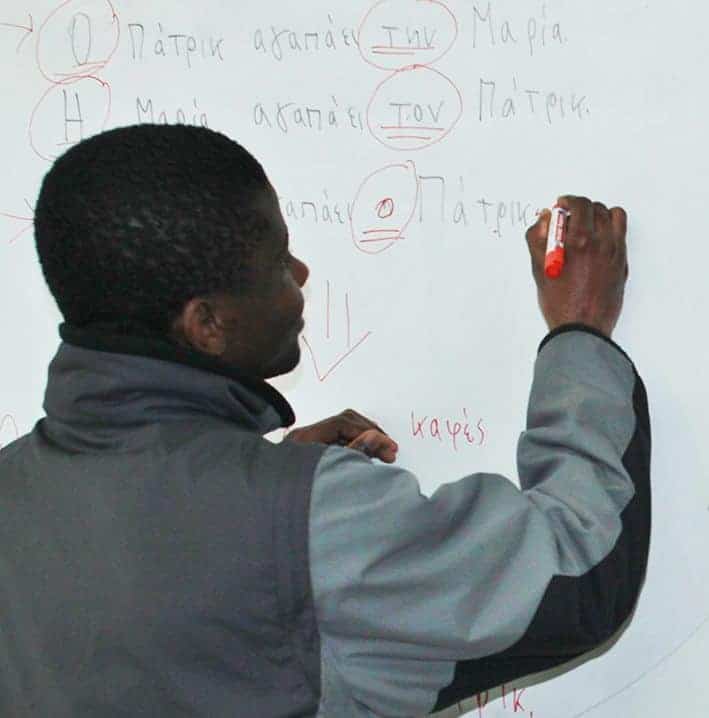 Ο Πάτρικ αγαπάει την Μαρία
Η Μαρία αγαπάει τον Πάτρικ.
ο Πάτρικ
καφές